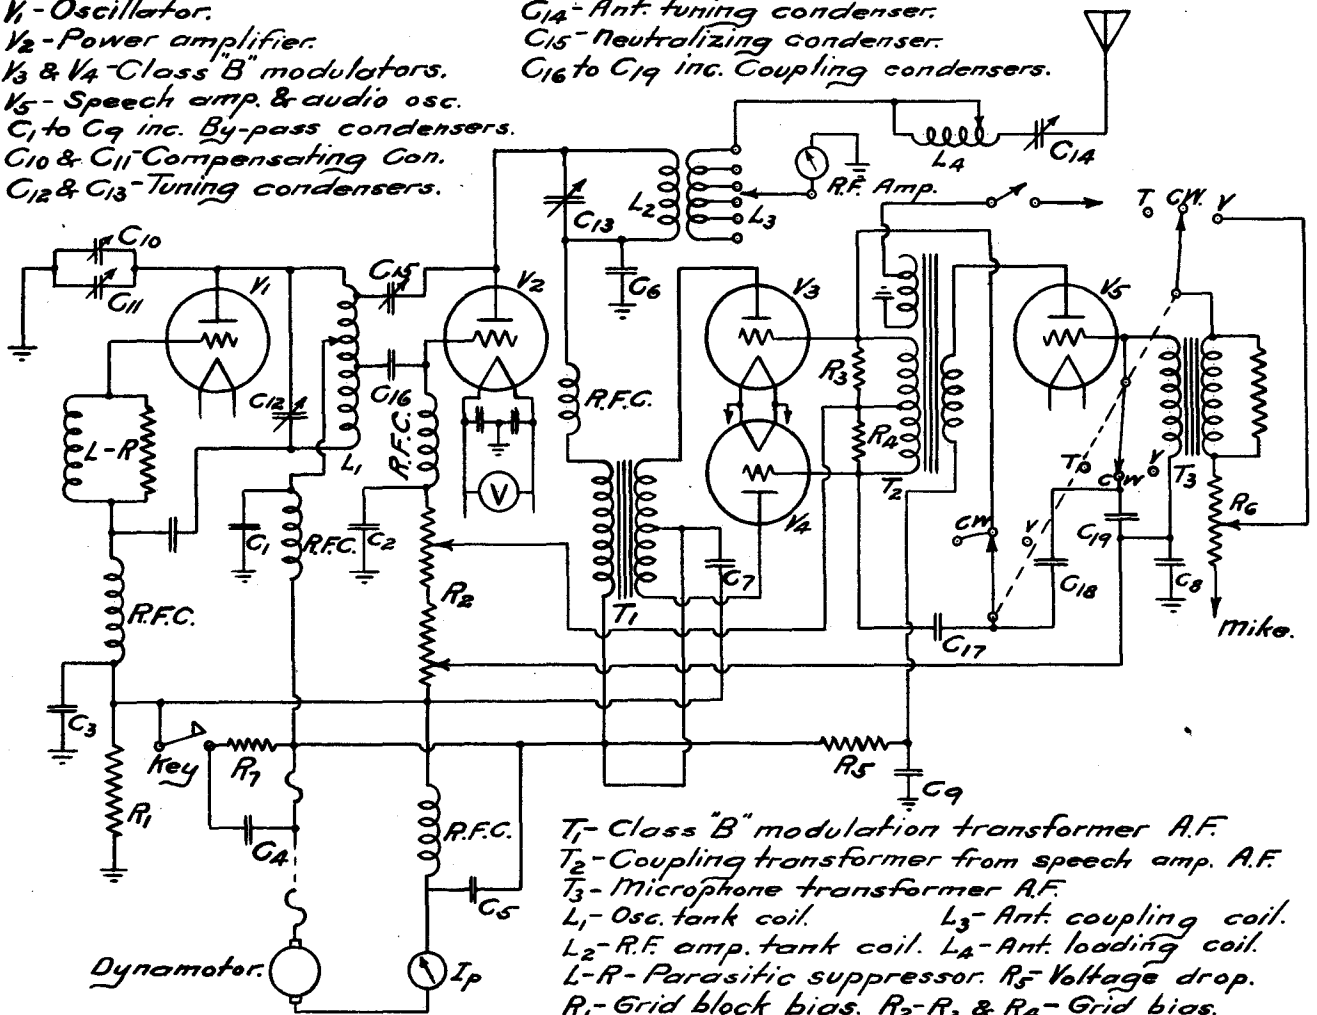 V1 - Oscillator.
V2 - Power amplifier.
V3 & V4 - Class "B" modulators.
V5 - Speech amp. & audio osc.
C1 to C9 inc. By-pass condensers.
C10 & C11 - Compensating Con.
C12 & C13 - Tuning condensers.
C14 - Ant. tuning condenser.
C15 - Neutralizing condenser.
C16 to C19 inc. Coupling condensers.
L4
C14
R.F. Amp.
T CW. V
L2
L3
C13
C6
C10
C11
V1
C15
V2
V3
V5
C12
C16
R.F.C.
R3
L-R
L1
R.F.C.
R4
V
T2
T V
CW
T3
R6
V4
C1
R.F.C.
C2
CW
V
C19
R2
T1
C7
C18
C8
R.F.C.
C17
Mike.
C3
Key
R7
R5
C9
R1
C4
R.F.C.
C5
Dynamotor.
Ip
T1 - Class "B" modulation transformer A.F.
T2 - Coupling transformer from speech amp. A.F.
T3 - Microphone transformer A.F.
L1 - Osc. tank coil. L3 - Ant. coupling coil.
L2 - R.F. amp. tank coil. L4 - Ant. loading coil.
L-R - Parasitic suppressor. R5 - Voltage drop.
R1 - Grid block bias. R2 - R3 & R4 - Grid bias.